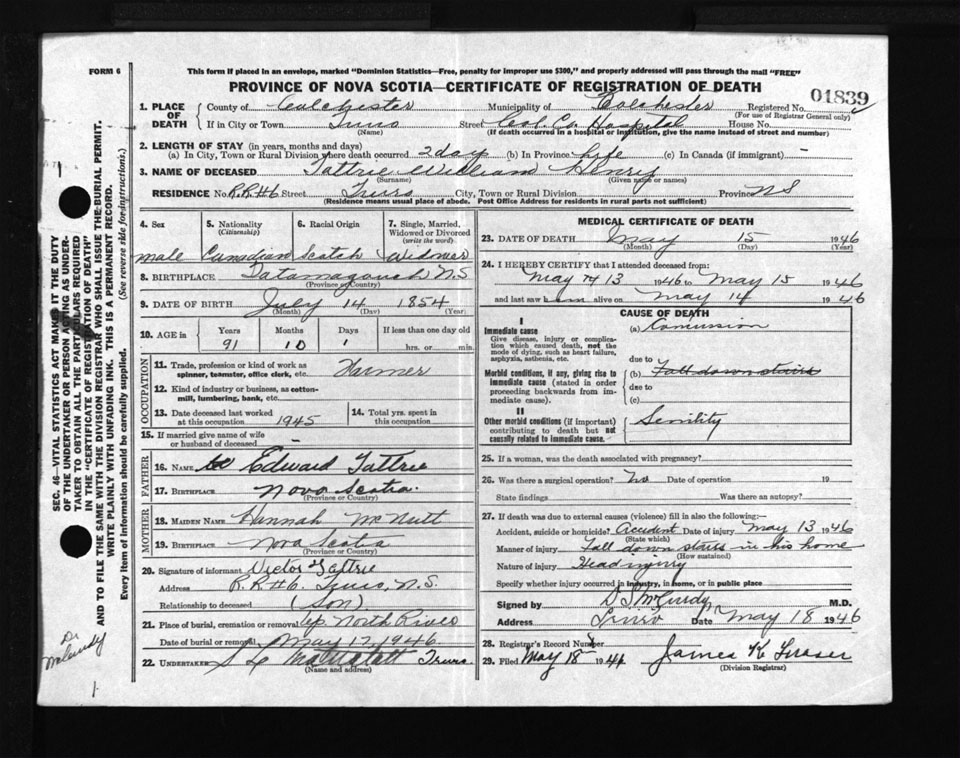 FORM 6
This form if placed in an envelope, marked "Dominion Statistics—Free, penalty for improper use $300," and properly addressed will pass through the mail "FREE"
PROVINCE OF NOVA SCOTIA—CERTIFICATE OF REGISTRATION OF DEATH
01839
1. PLACE OF DEATH County of Colchester Municipality of Colchester Registered No.
(For use of Registrar General only)
If in City or Town Truro Street Col. Co. Hospital House No.
(Name) (If death occurred in a hospital or institution, give the name instead of street and number)
2. LENGTH OF STAY (in years, months and days)
(a) In City, Town or Rural Division where death occurred 2 day (b) In Province Life (c) In Canada (if immigrant) —
3. NAME OF DECEASED Tattrie William Henry
(Surname) (Given name or names)
RESIDENCE No. R.R#6 Street Truro City, Town or Rural Division Province N S
(Residence means usual place of abode. Post Office Address for residents in rural parts not sufficient)
4. Sex 5. Nationality (Citizenship) 6. Racial Origin 7. Single, Married, Widowed or Divorced (write the word)
male Canadian Scotch Widower
8. BIRTHPLACE Tatamagouch N.S
(Province or Country)
9. DATE OF BIRTH July 14 1854
(Month) (Day) (Year)
10. AGE in Years Months Days If less than one day old
91 10 1 hrs. or min.
OCCUPATION
11. Trade, profession or kind of work as spinner, teamster, office clerk, etc. Farmer
12. Kind of industry or business, as cotton-mill, lumbering, bank, etc.
13. Date deceased last worked at this occupation 1945 14. Total yrs. spent in this occupation
15. If married give name of wife or husband of deceased —
FATHER
16. NAME Edward Tattrie
17. BIRTHPLACE Nova Scotia
(Province or Country)
MOTHER
18. MAIDEN NAME Hannah McNutt
19. BIRTHPLACE Nova Scotia
(Province or Country)
20. Signature of informant Victor Tattrie
Address R.R#6. Truro, N.S.
Relationship to deceased (Son)
21. Place of burial, cremation or removal North River
Date of burial or removal May 17, 1946
22. UNDERTAKER Truro.
(Name and address)
MEDICAL CERTIFICATE OF DEATH
23. DATE OF DEATH May 15 1946
(Month) (Day)
24. I HEREBY CERTIFY that I attended deceased from:
May 13 1946 to May 15 1946
and last saw him alive on May 14 1946
CAUSE OF DEATH
I
Immediate cause
Give disease, injury or complication which caused death, not the mode of dying, such as heart failure, asphyxia, asthenia, etc.
(a) Concussion
due to
Morbid conditions, if any, giving rise to immediate cause (stated in order proceeding backwards from immediate cause).
(b) Fall down stairs
due to
(c)
II
Other morbid conditions (if important) contributing to death but not causally related to immediate cause.
Senility
25. If a woman, was the death associated with pregnancy?
26. Was there a surgical operation? No Date of operation 19
State findings Was there an autopsy?
27. If death was due to external causes (violence) fill in also the following:—
Accident, suicide or homicide? Accident Date of injury May 13 1946
(State which)
Manner of injury Fall down stairs in his home
(How sustained)
Nature of injury Head injury
Specify whether injury occurred in industry, in home, or in public place
Signed by D S McCurdy M.D.
Address Truro Date May 18 1946
28. Registrar's Record Number
29. Filed May 18 1946 James K Fraser
(Division Registrar)
SEC. 46—VITAL STATISTICS ACT MAKES IT THE DUTY OF THE UNDERTAKER OR PERSON ACTING AS UNDERTAKER TO OBTAIN ALL THE PARTICULARS REQUIRED IN THE "CERTIFICATE OF REGISTRATION OF DEATH" AND TO FILE THE SAME WITH THE DIVISION REGISTRAR WHO SHALL ISSUE THE BURIAL PERMIT.
WRITE PLAINLY WITH UNFADING INK. THIS IS A PERMANENT RECORD.
Every item of information should be carefully supplied. (See reverse side for instructions.)
Dr McCurdy
1